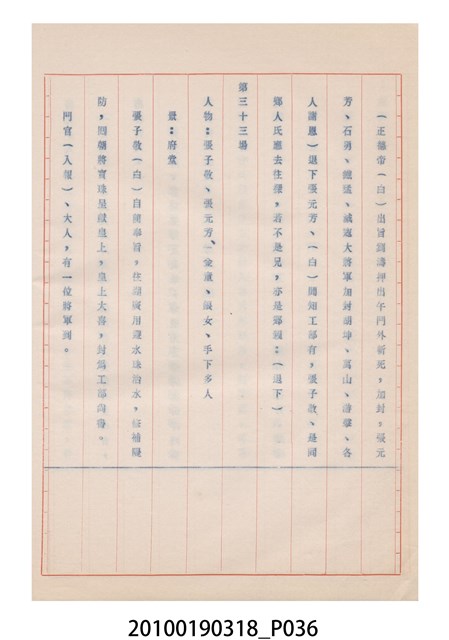 （正德帝（白）出旨劉濤押出午門外斬死，加封，張元
芳、石勇、 大將軍加封胡坤、萬山、游擊、各
人謝恩）退下張元芳、（白）聞知工部有，張子敬、是同
鄉人氏應去住探，若不是兄，亦是鄉親：（退下）
第三十三場
人物：張子敬、張元芳、金童、銀女、手下多人
景：府堂
張子敬（白）自領奉旨，住湖廣用避水珠治水，修補隄
防，回朝將寶珠呈獻皇上，皇上大喜，封為工部尚書。
門官（入報）、大人，有一位將軍到。
20100190318_P036